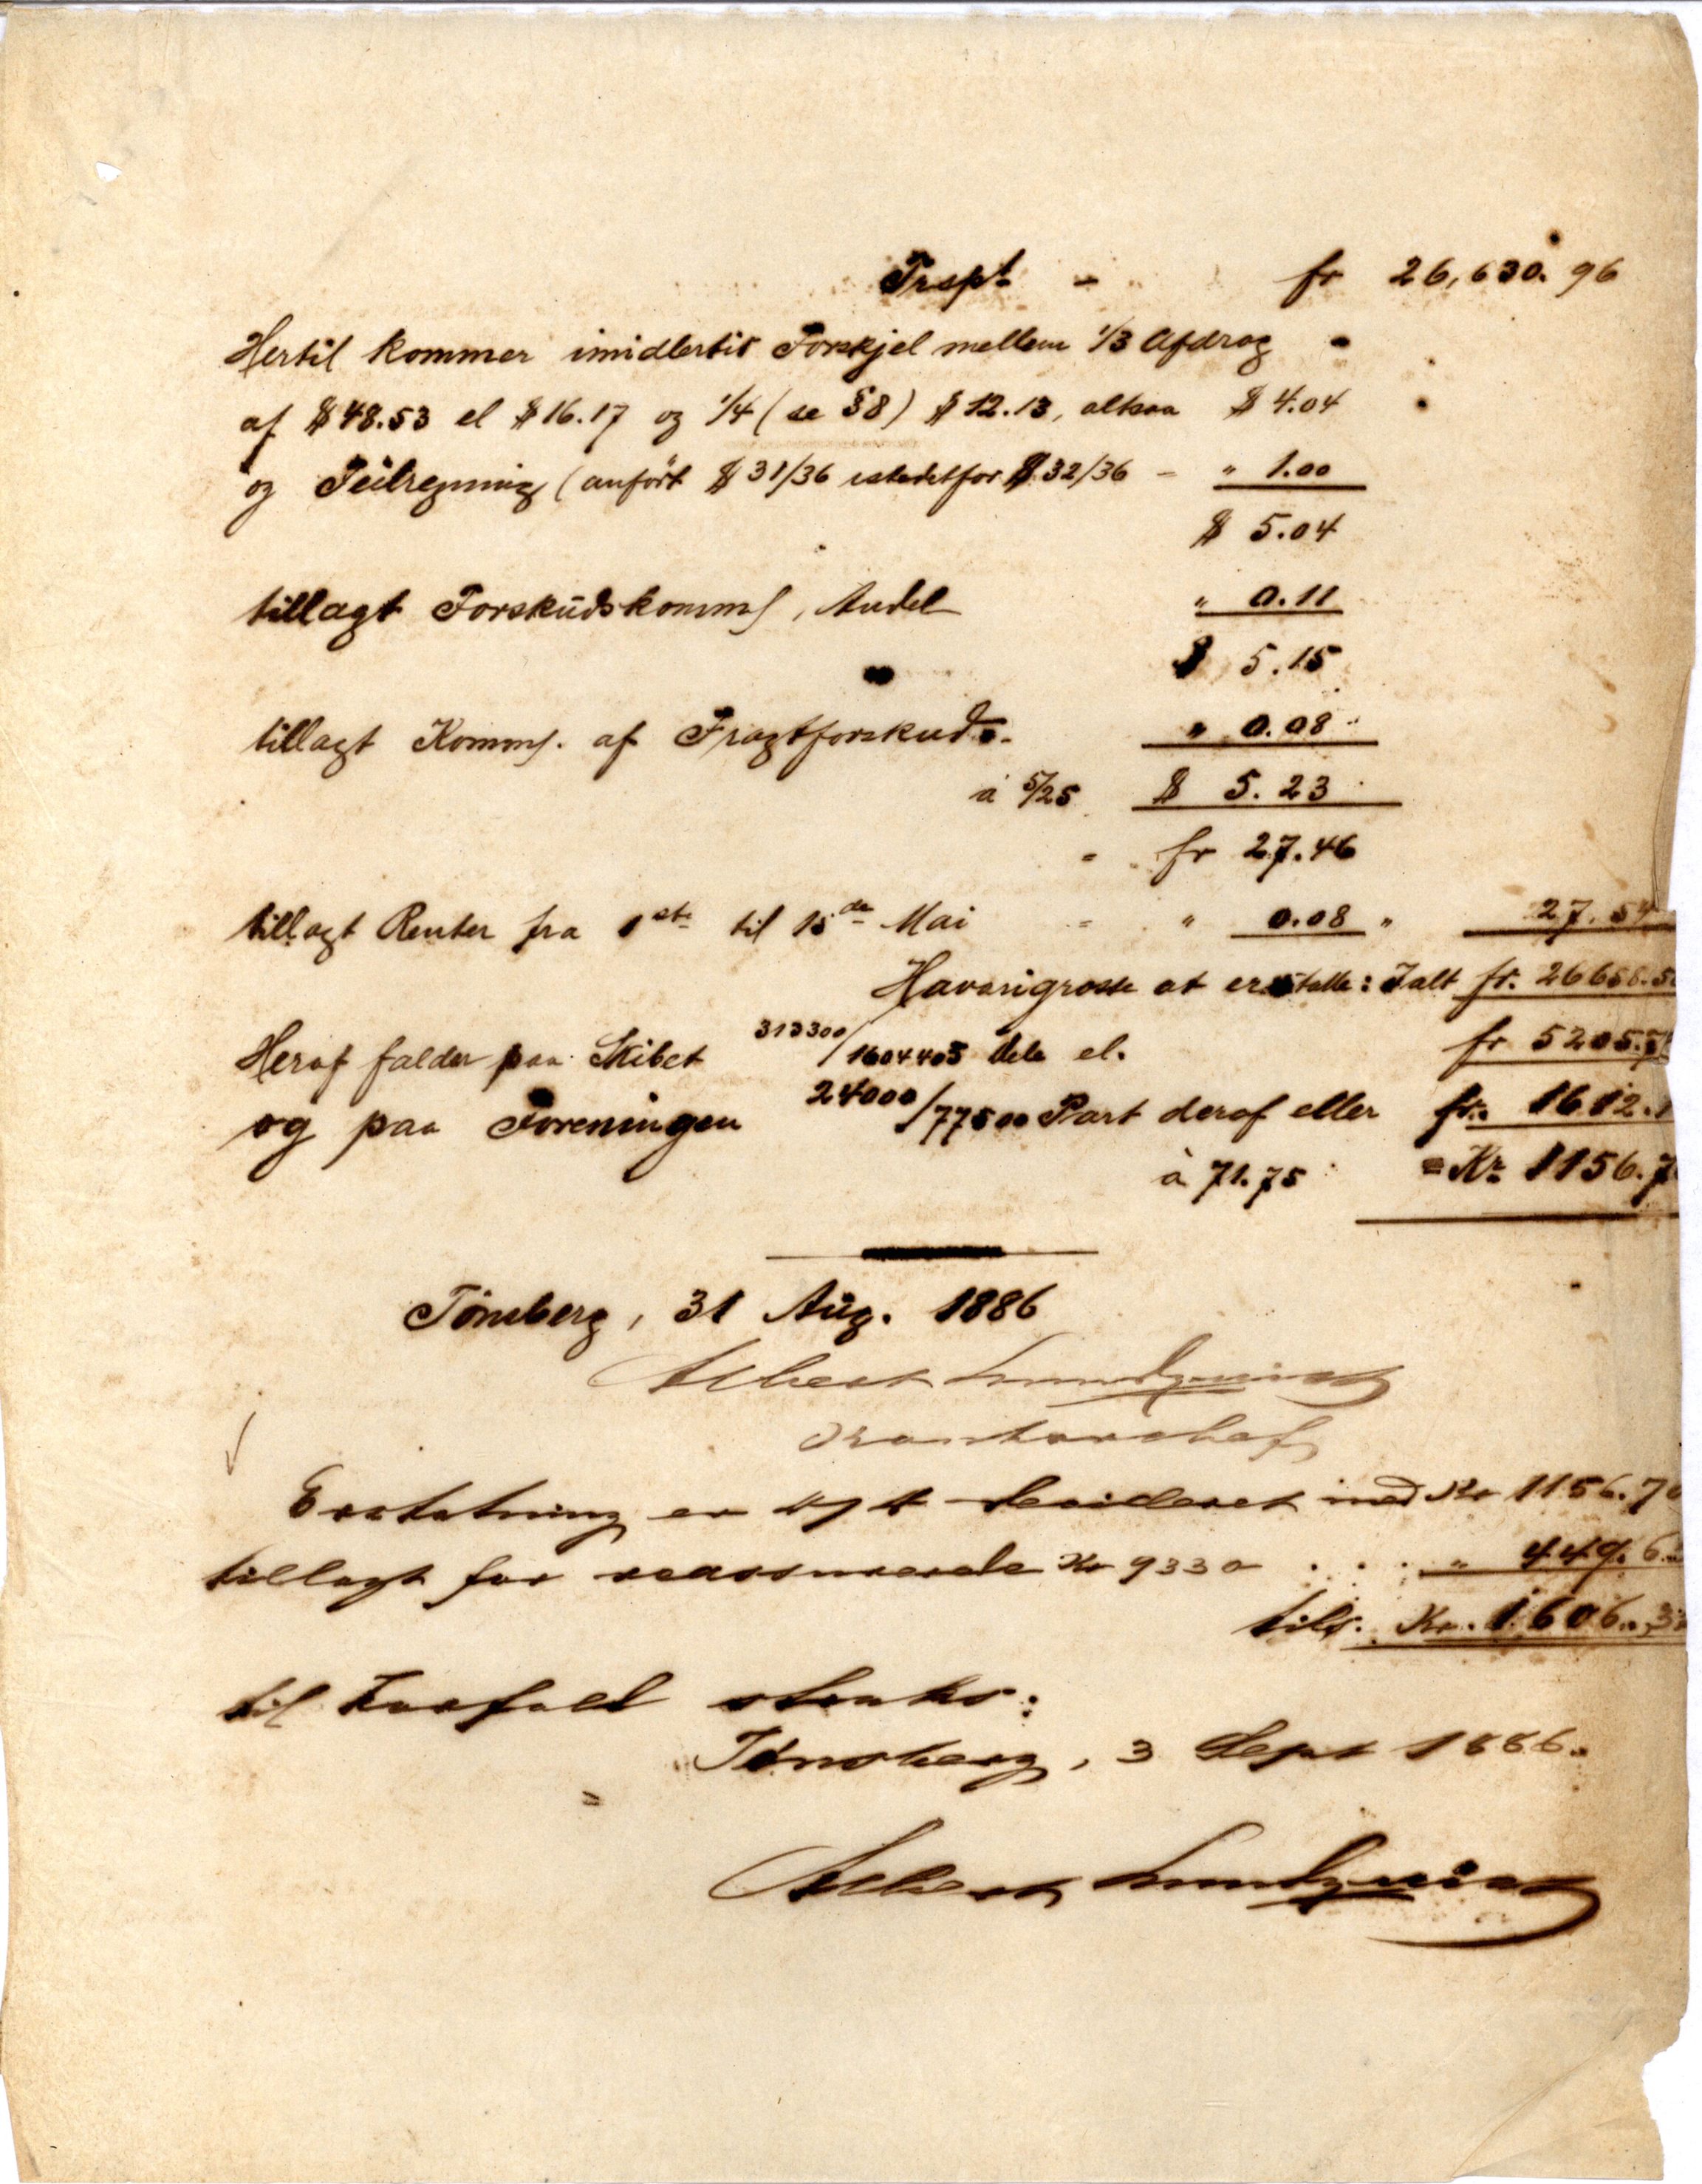 Trspt - fr 26,630.96
Hertil kommer imidlertid Forskjel mellem 1/3 Afdrag
af $ 48.53 el $ 16.17 og 1/4 (se §8) $ 12.13, altsaa $ 4.04
og Feilregning (anført $ 31/36 istedetfor $ 32/36 - " 1.00
$ 5.04
tillagt Forskudskomms, Andel " 0.11
$ 5.15
tillagt Komms. af Fragtforskud " 0.08
à 5/25 $ 5.23
= fr 27.46
tillagt Renter fra 1ste til 15de Mai = " 0.08 " 27.54
Havarigrosse at erstatte: Ialt fr. 26658.5
Heraf falder paa Skibet 313300/1604405 dele el. fr 5205.
og paa Foreningen 24000/77500 Part deraf eller fr. 1612.
à 71.75 = Kr 1156.7
Tönsberg, 31 Aug. 1886
Albert Lundquist
Erstatning er decideret med Kr 1156.70
tillagt for reassurerede Kr 9330 . . . " 449.6
tils. Kr. 1606.3
til Forfald straks:
Tönsberg, 3 Sept 1886.
Albert Lundquist